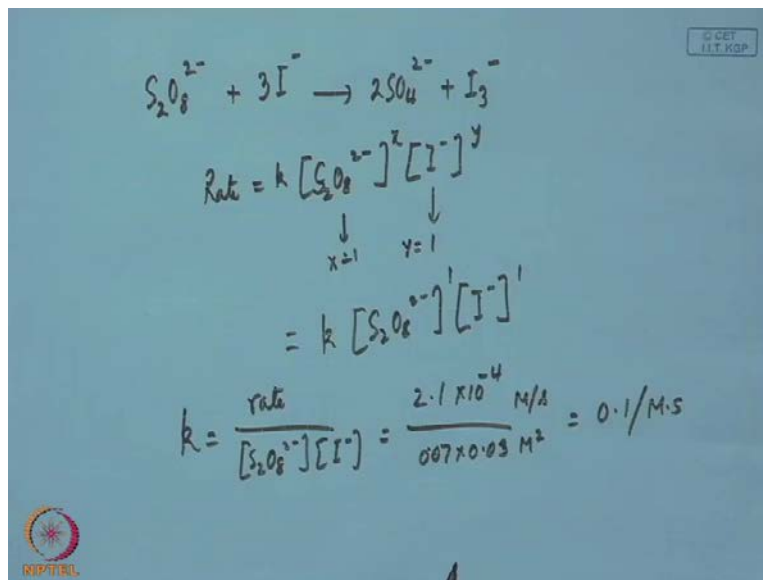 © CET
I.I.T. KGP
S₂O₈²⁻ + 3I⁻ → 2SO₄²⁻ + I₃⁻
Rate = k [S₂O₈²⁻]ˣ [I⁻]ʸ
↓ ↓
x=1 y=1
= k [S₂O₈²⁻]¹ [I⁻]¹
k = rate / [S₂O₈²⁻][I⁻] = 2.1 × 10⁻⁴ M/s / 0.07 × 0.03 M² = 0.1/M·s
NPTEL